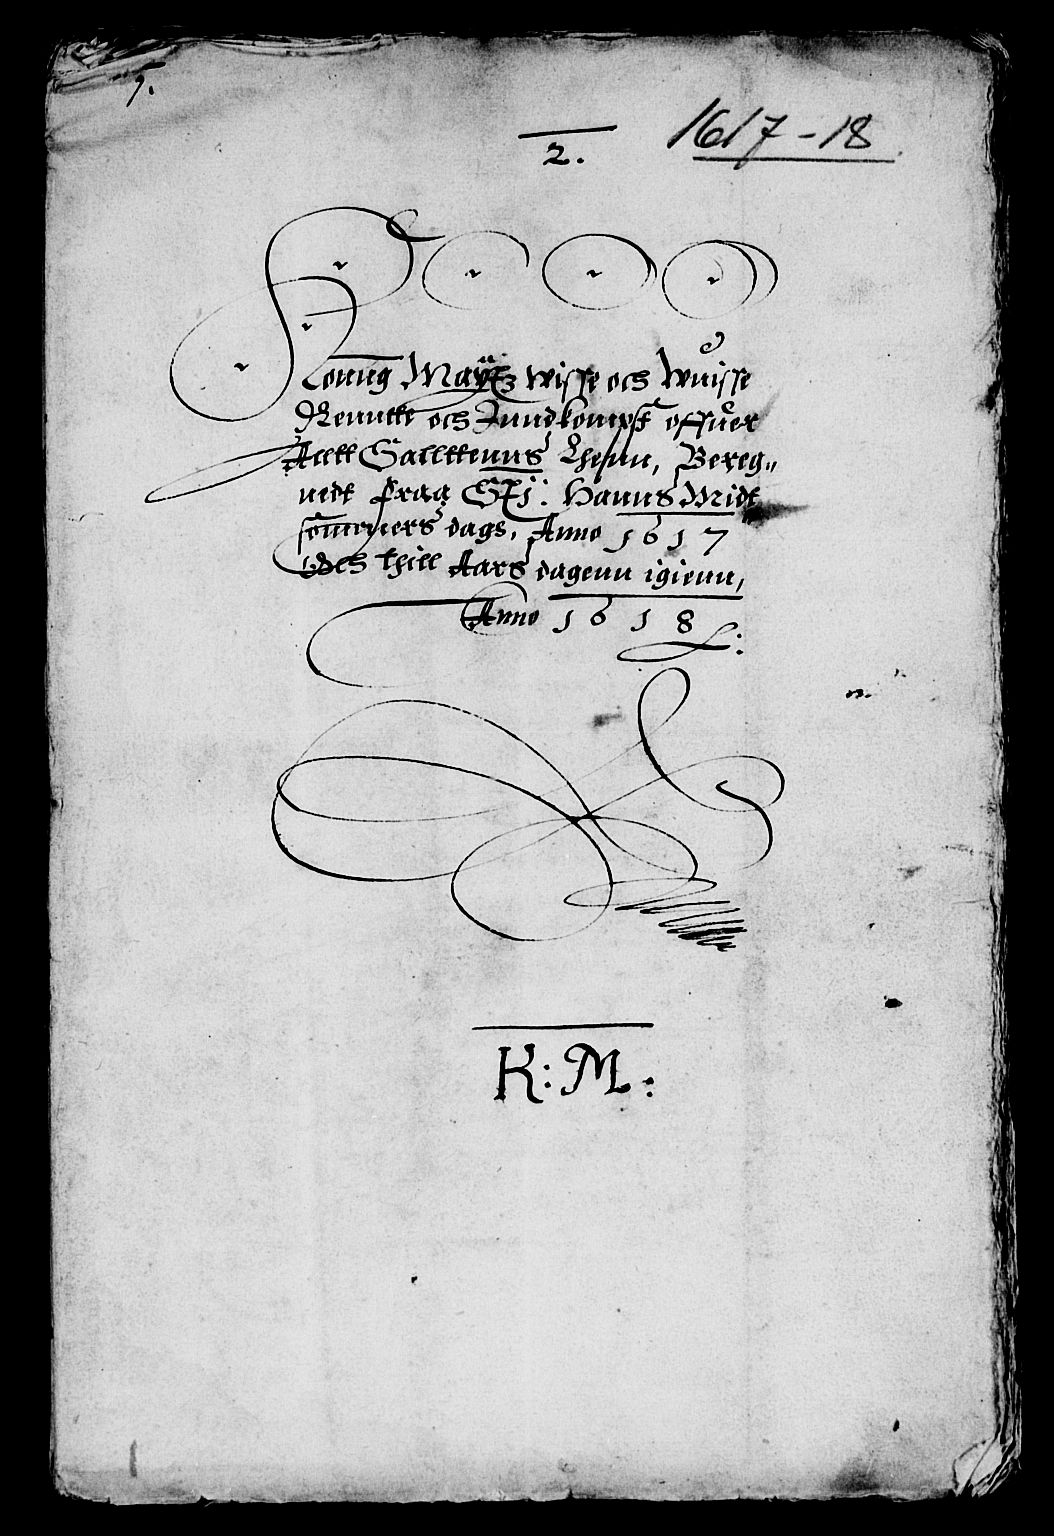 7.
1617-18
2.
Konng Maÿtz wisse och Wuisse
Renntte och Inndkompst offuer
Allt Salttenns Lhenn, Bereg„
nedt fraa St j: Hanns Midt
sommers dags, Anno 1617
Och thill Aars dagenn igienn,
Anno 1618
K: M: